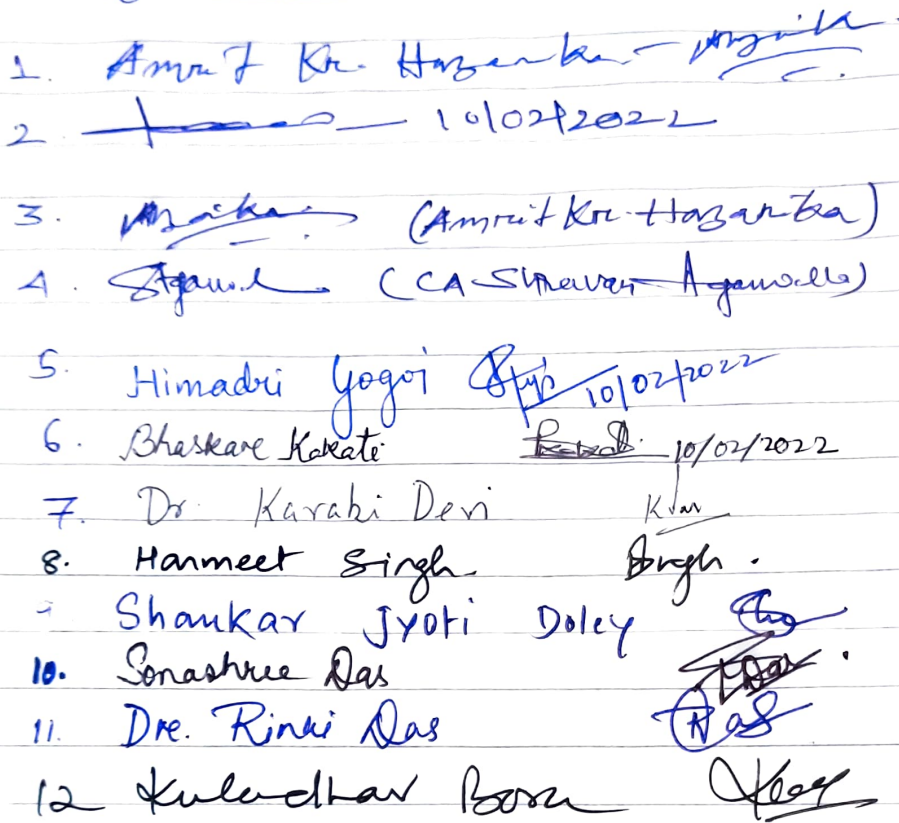 1. Amrit Kr. Hazarika -
2. 10/02/2022
3. (Amrit Kr. Hazarika)
4. (CA-Shravan Agarwalla)
5. Himadri Gogoi 10/02/2022
6. Bhaskare Kakati 10/02/2022
7. Dr. Karabi Devi
8. Harmeet Singh. Singh.
Shankar Jyoti Doley
10. Sonashree Das
11. Dre. Rinki Das
12 Kuladhar Bora